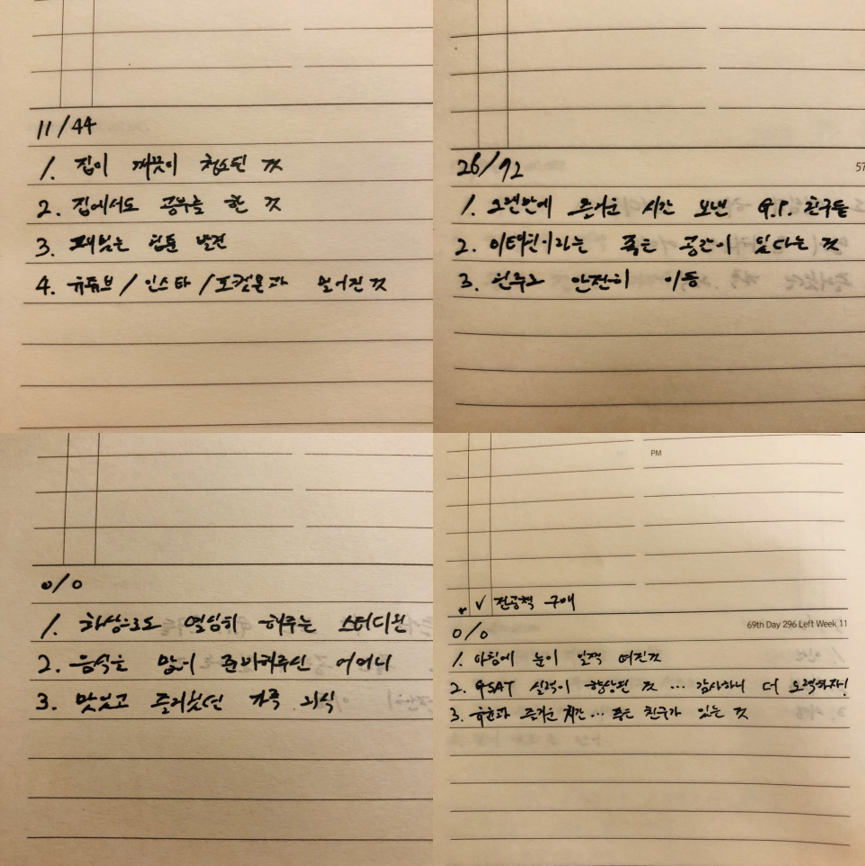 11/44
1. 집이 깨끗이 청소된 것
2. 집에서도 공부를 한 것
3. 재밌는 웹툰 발견
4. 유튜브/인스타/포켓몬과 멀어진 것
26/92
57
1. 2년만에 즐거운 시간 보낸 G.P. 친구들
2. 이태원이라는 좋은 공간이 있다는 것
3. 원주로 안전히 이동
0/0
1. 화상으로도 열심히 해주는 스터디원
2. 음식을 많이 준비해주신 어머니
3. 맛있고 즐거웠던 가족 외식
PM
✓ 전공책 구매
69th Day 296 Left Week 11
0/0
1. 아침에 눈이 일찍 떠진 것
2. GSAT 실력이 향상된 것 ... 감사하니 더 노력하자!
3. 즐거운 시간... 좋은 친구가 있는 것